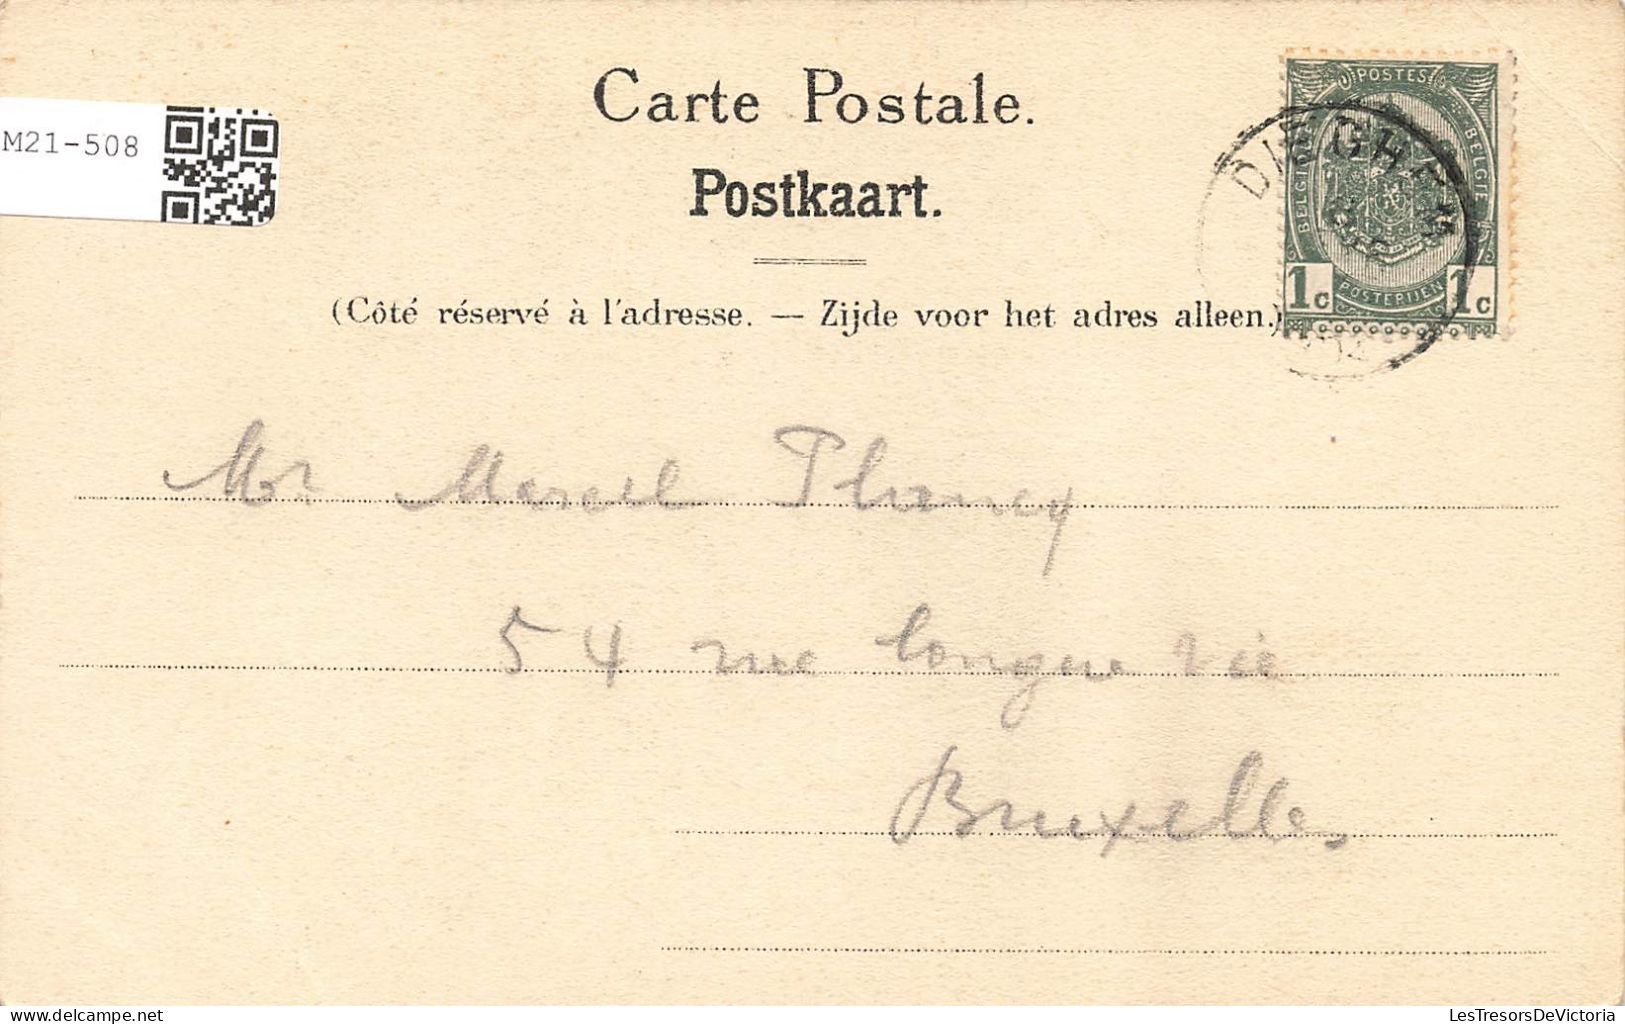 Carte Postale.
M21-508
Postkaart.
(Côté réservé à l'adresse. — Zijde voor het adres alleen.)
POSTES
BELGIQUE
BELGIE
DIEGHEM
1c
POSTERIJEN
1c
Mr Marcel
54 rue longue vie
Bruxelles
delcampe.net
LesTresorsDeVictoria